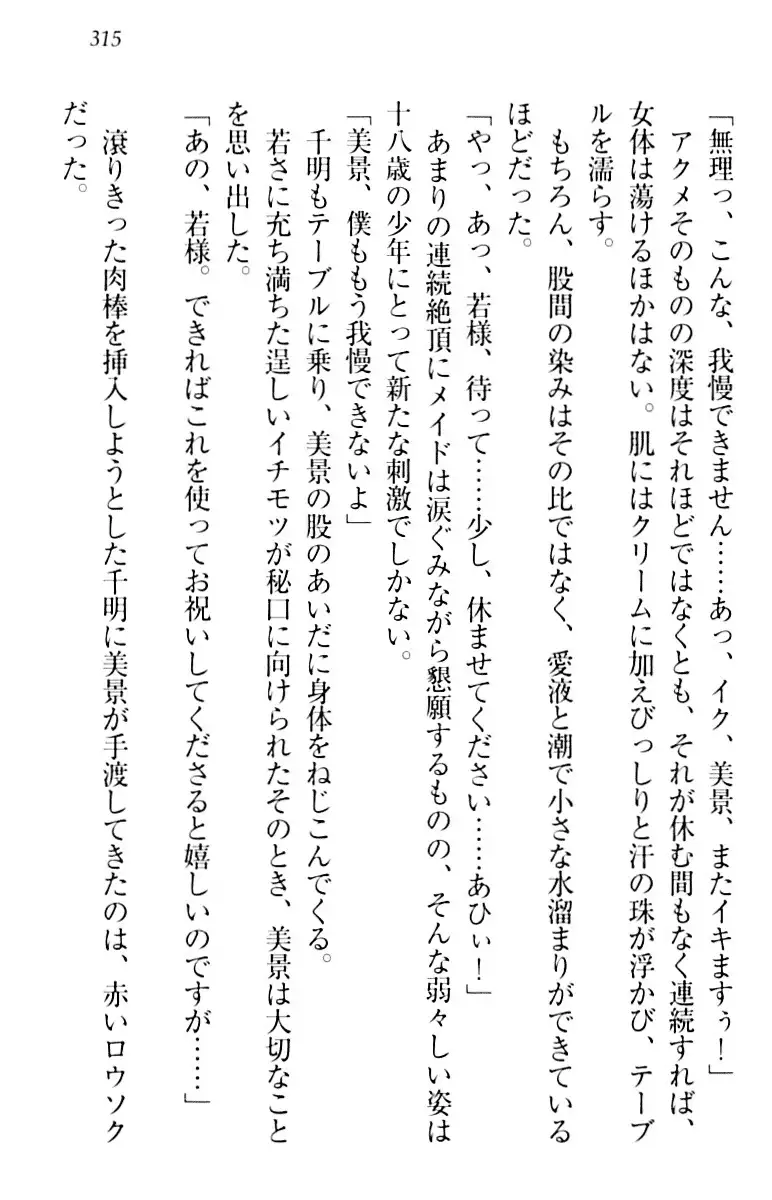 315
「無理っ、こんな、我慢できません……あっ、イク、美景、またイキますぅ！」
アクメそのものの深度はそれほどではなくとも、それが休む間もなく連続すれば、
女体は蕩けるほかはない。肌にはクリームに加えびっしりと汗の珠が浮かび、テーブ
ルを濡らす。
もちろん、股間の染みはその比ではなく、愛液と潮で小さな水溜まりができている
ほどだった。
「やっ、あっ、若様、待って……少し、休ませてください……あひぃ！」
あまりの連続絶頂にメイドは涙ぐみながら懇願するものの、そんな弱々しい姿は
十八歳の少年にとって新たな刺激でしかない。
「美景、僕ももう我慢できないよ」
千明もテーブルに乗り、美景の股のあいだに身体をねじこんでくる。
若さに充ち満ちた逞しいイチモツが秘口に向けられたそのとき、美景は大切なこと
を思い出した。
「あの、若様。できればこれを使ってお祝いしてくださると嬉しいのですが……」
滾りきった肉棒を挿入しようとした千明に美景が手渡してきたのは、赤いロウソク
だった。